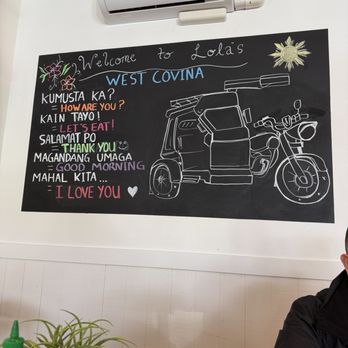 Welcome to Lola's
WEST COVINA
KUMUSTA KA?
= HOW ARE YOU?
KAIN TAYO!
= LET'S EAT!
SALAMAT PO
= THANK YOU
MAGANDANG UMAGA
= GOOD MORNING
MAHAL KITA...
= I LOVE YOU